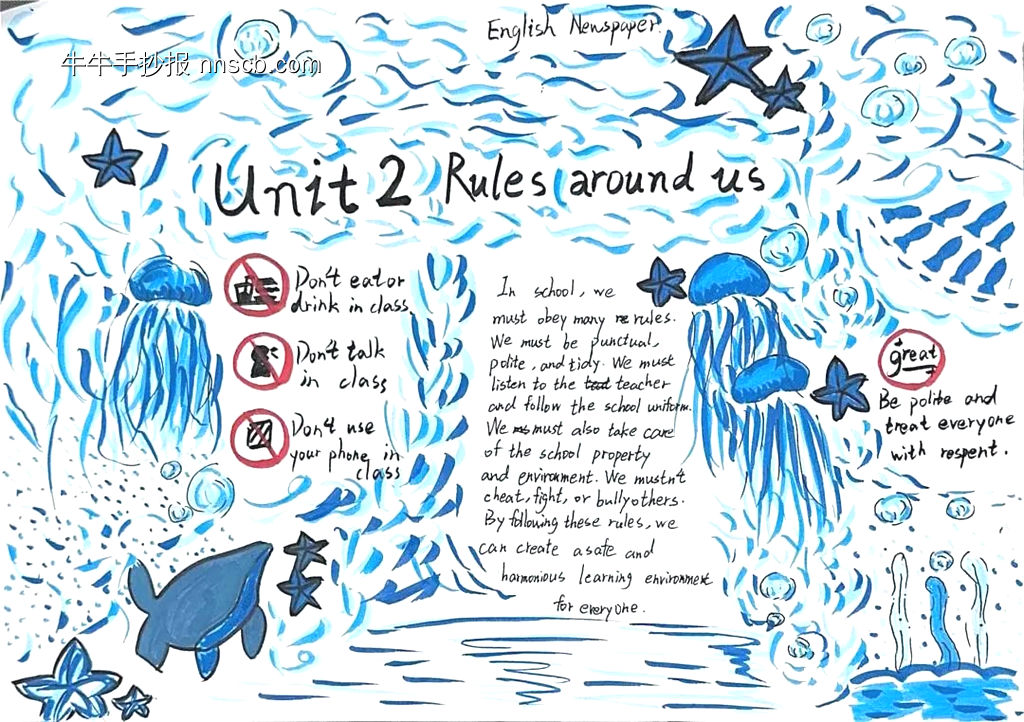 English Newspaper.
牛牛手抄报 nnscb.com
Unit 2 Rules around us
Don't eat or
drink in class.
Don't talk
in class
Don't use
your phone in
class
In school, we
must obey many rules.
We must be punctual,
polite, and tidy. We must
listen to the teacher
and follow the school uniform.
We must also take care
of the school property
and environment. We mustn't
cheat, fight, or bully others.
By following these rules, we
can create a safe and
harmonious learning environment
for everyone.
great
Be polite and
treat everyone
with respent.